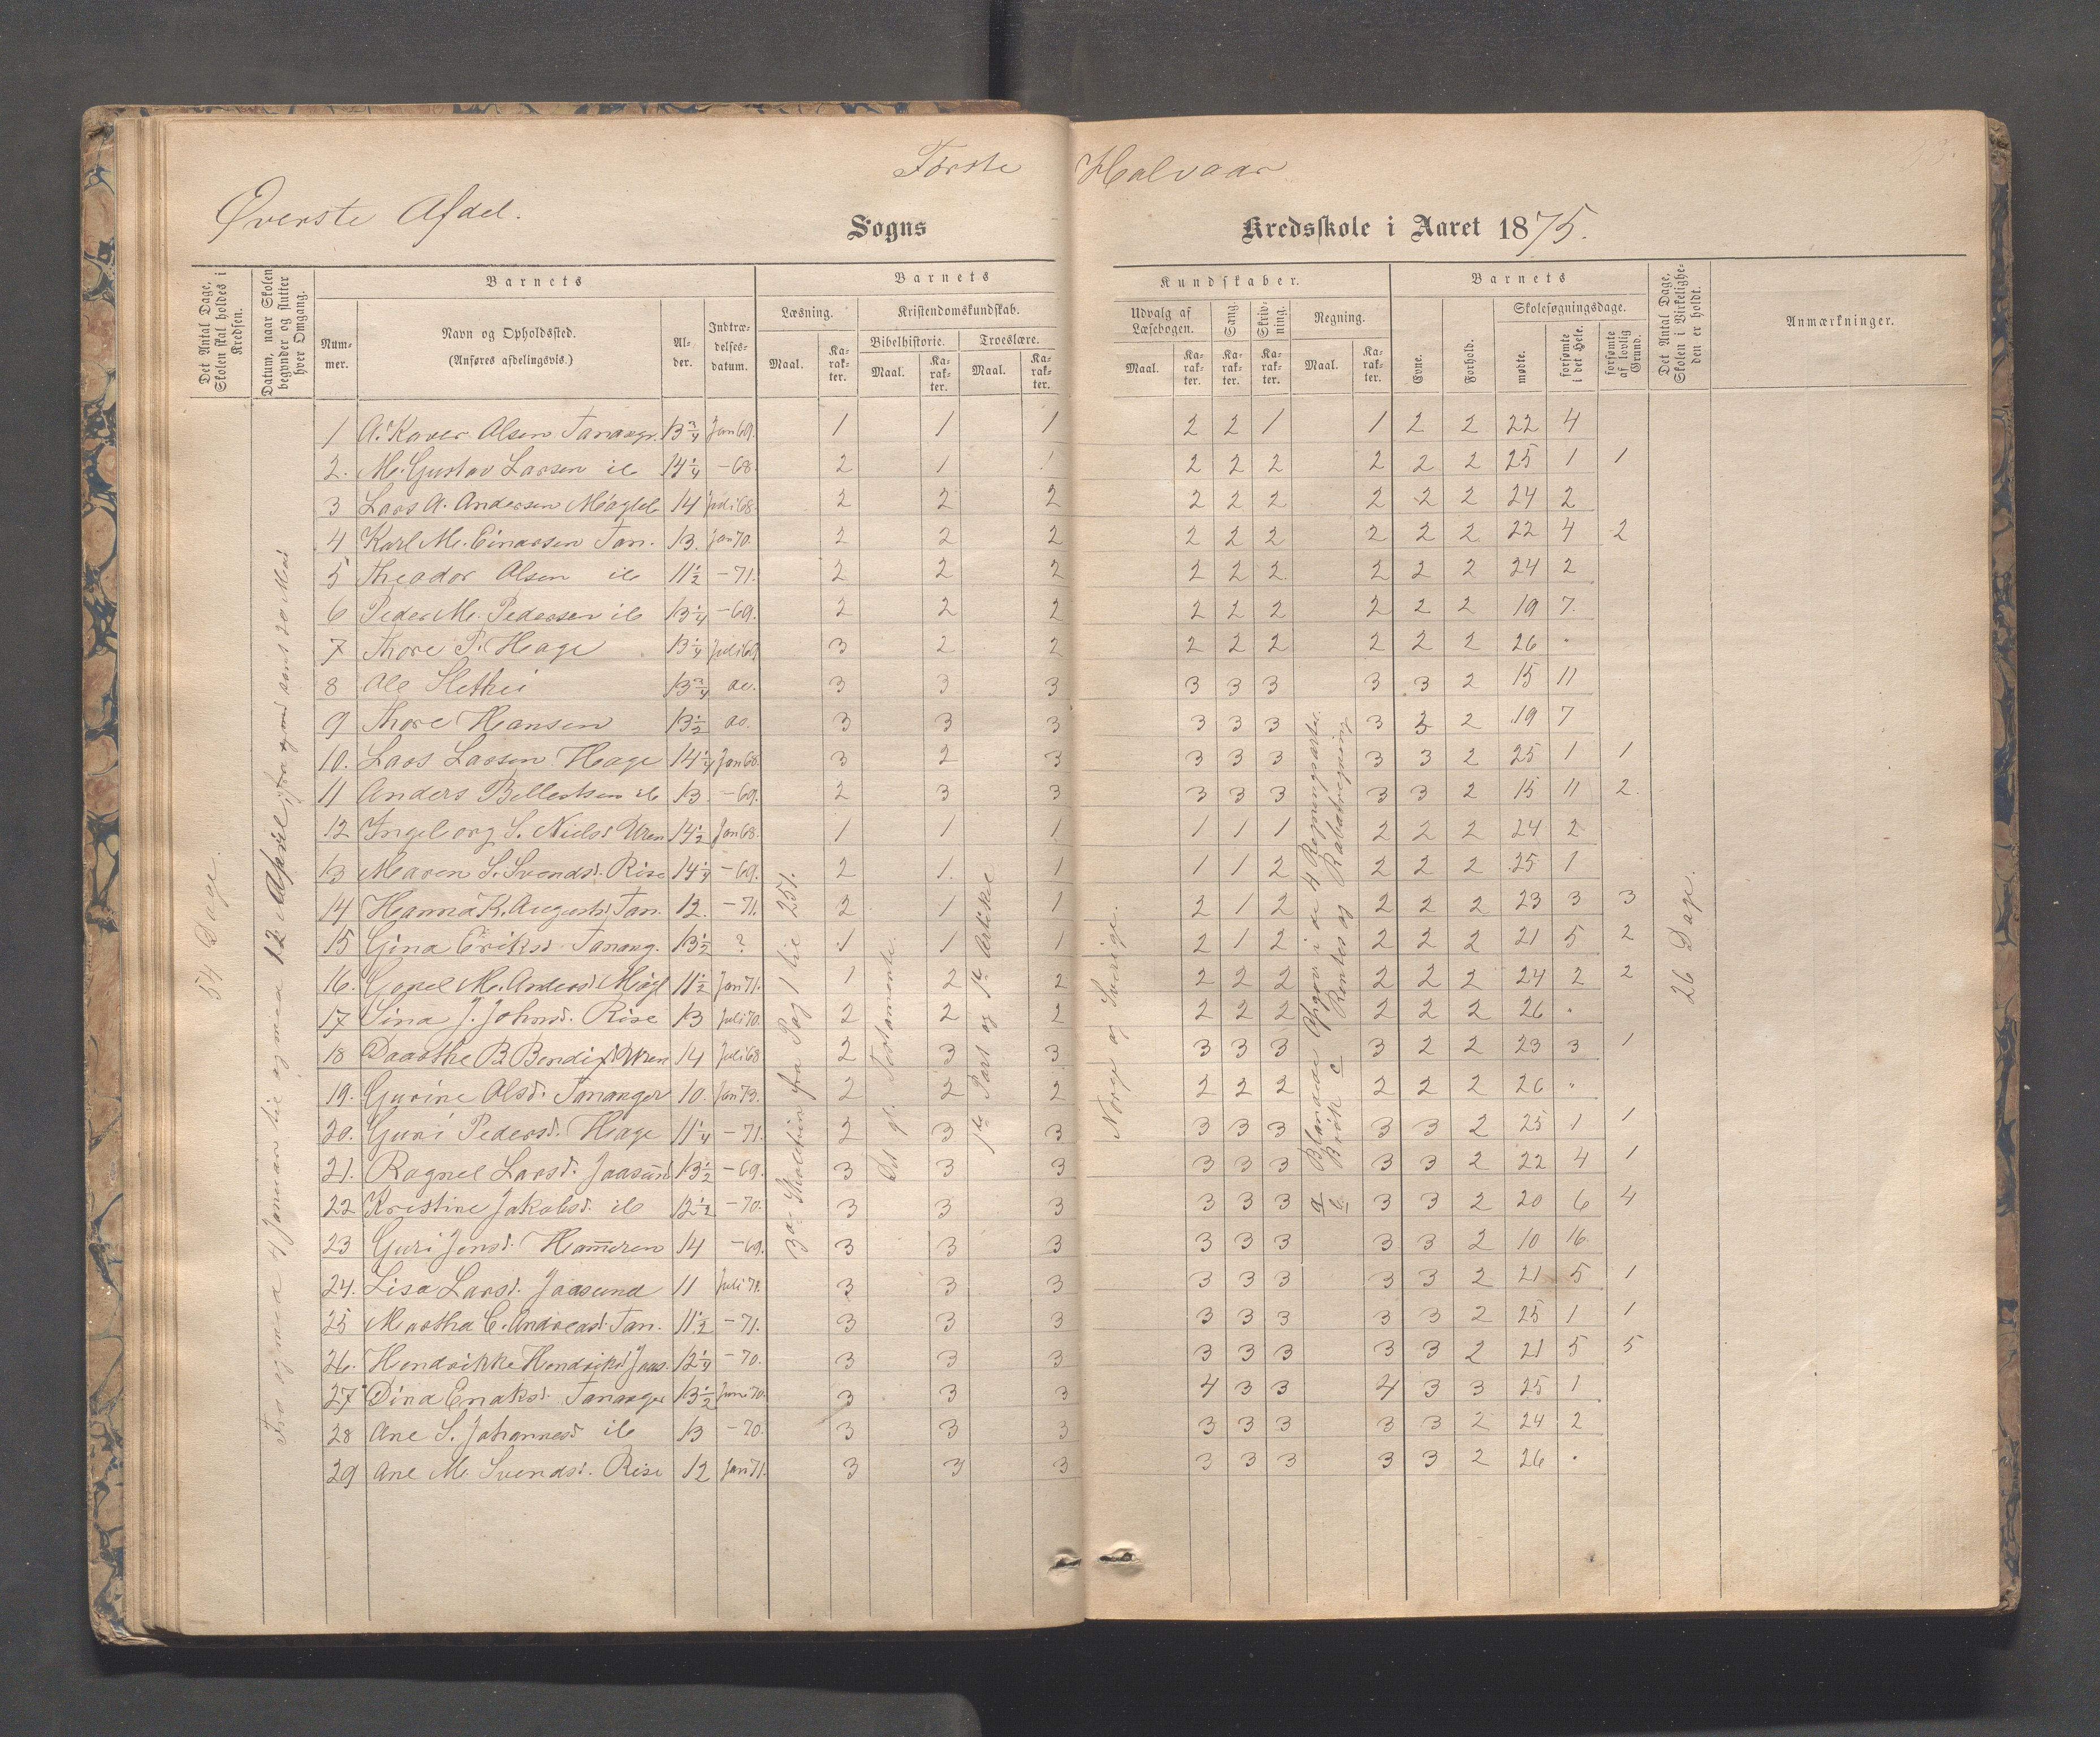 Første Halvaar
Øverste Afdel.
Sogns Kredsskole i Aaret 1875.
Det Antal Dage, Skolen skal holdes i Kredsen.
Datum, naar Skolen begynder og slutter hver Omgang.
Barnets
Num-mer.
Navn og Opholdssted.
(Anføres afdelingsvis.)
Al-der.
Indtræ-delses-datum.
Barnets Kundskaber.
Læsning.
Maal. Ka-rak-ter.
Kristendomskundskab.
Bibelhistorie. Troeslære.
Maal. Ka-rak-ter. Maal. Ka-rak-ter.
Udvalg af Læsebogen.
Maal. Ka-rak-ter.
Sang. Ka-rak-ter.
Skriv-ning. Ka-rak-ter.
Regning.
Maal. Ka-rak-ter.
Barnets
Evne. Forhold.
Skolesøgningsdage.
mødte. forsømte i det Hele. forsømte af lovlig Grund.
Det Antal Dage, Skolen i Virkelighe-den er holdt.
Anmærkninger.
54 Dage.
Fra og med 4 Januar til og med 12 April, fra og med samt 20 Mai
1 A. Kaver Olsen Tananger 13 3/4 Jan 69. 1 1 1 2 2 1 1 2 2 22 4
2. M. Gustav Larsen ib 14 1/4 - 68. 2 1 1 2 2 2 2 2 2 25 1 1
3 Lars A. Andersen Møgleb 14 Juli 68. 2 2 2 2 2 2 2 2 2 24 2
4 Karl M. Einarsen Tan. 13. Jan 70. 2 2 2 2 2 2 2 2 2 22 4 2
5 Theodor Olsen ib 11 1/2 - 71. 2 2 2 2 2 2 2 2 2 24 2
6 Peder M. Pedersen ib 13 1/4 - 69. 2 2 2 2 2 2 2 2 2 19 7.
7 Thore P. Hage 13 1/4 Juli 69 3 2 2 2 2 2 2 2 2 26 .
8 Ole Slethei 13 3/4 do. 3 3 3 3 3 3 3 3 2 15 11
9 Thore Hansen 13 1/2 do. 3 3 3 3 3 3 3 3 2 19 7
10. Lars Larsen Hage 14 1/4 Jan 68. 3 2 3 3 3 3 3 3 2 25 1 1
11 Anders Bellertsen ib 13. - 69. 2 3 3 3 3 3 3 3 2 15 11 2.
12 Ingeborg S. Nielsd 14 1/2 Jan 68. 1 1 1 1 1 1 2 2 2 24 2
13 Maren S. Svendsd. Rise 14 1/4 - 69. 2 1. 1 1 1 2 2 2 2 25 1
14 Hanna K. Augustsd Tan. 12. - 71. 2 1 1 2 1 2 2 2 2 23 3 3
15 Gina Eriksd Tanang. 13 1/2 ? 1 1 1 2 1 2 2 2 2 21 5 2
16. Gonel M. Andersd Møgl 11 1/2 Jan 71. 1 2 2 2 2 2 2 2 2 24 2 2
17 Sina J. Johnsd. Rise 13 Juli 70. 2 2 2 2 2 2 2 2 2 26 .
18 Daarthe B. Bendixd 14 Juli 68 2 3 3 3 3 3 3 2 2 23 3 1
19. Gurine Olsd. Tananger 10. Jan 73. 2 2 2 2 2 2 2 2 2 26 "
20. Guri Pedersd. Hage 11 1/4 - 71. 2 3 3 3 3 3 3 3 2 25 1 1
21. Ragnel Larsd. Jaasund 13 1/2 - 69. 3 3 3 3 3 3 3 3 2 22 4 1
22 Kristine Jakobsd. ib 12 1/2 - 70. 3 3 3 3 3 3 3 3 2 20 6 4
23 Guri Jensd. Hammeren 14 - 69. 3 3 3 3 3 3 3 3 2 10 16.
24. Lisa Larsd. Jaasund 11 Juli 71. 3 3 3 3 3 3 3 3 2 21 5 1
25 Martha C. Andreasd. Tan. 11 1/2 - 71. 3 3 3 3 3 3 3 3 2 25 1 1
26. Hendrikke Hendriksd Jaas. 12 1/4 - 70. 3 3 3 3 3 3 3 3 2 21 5 5
27 Dina Enaksd. Tananger 13 1/2 Jan 70. 3 3 3 4 3 3 4 3 3 25 1
28 Ane S. Johannesd ib 13 - 70. 3 3 3 3 3 3 3 3 2 24 2
29 Ane M. Svendsd. Rise 12 Jan 71. 3 3 3 3 3 3 3 3 2 26 .
fra Pag 1 til 251.
Det gl. Testamente.
1ste Part og 1ste Artikel
Norge og Sverige.
a Blandede Opgav i de 4 Regningsarter.
b. Brøk c Rentes og Rabatregning
26 Dage.